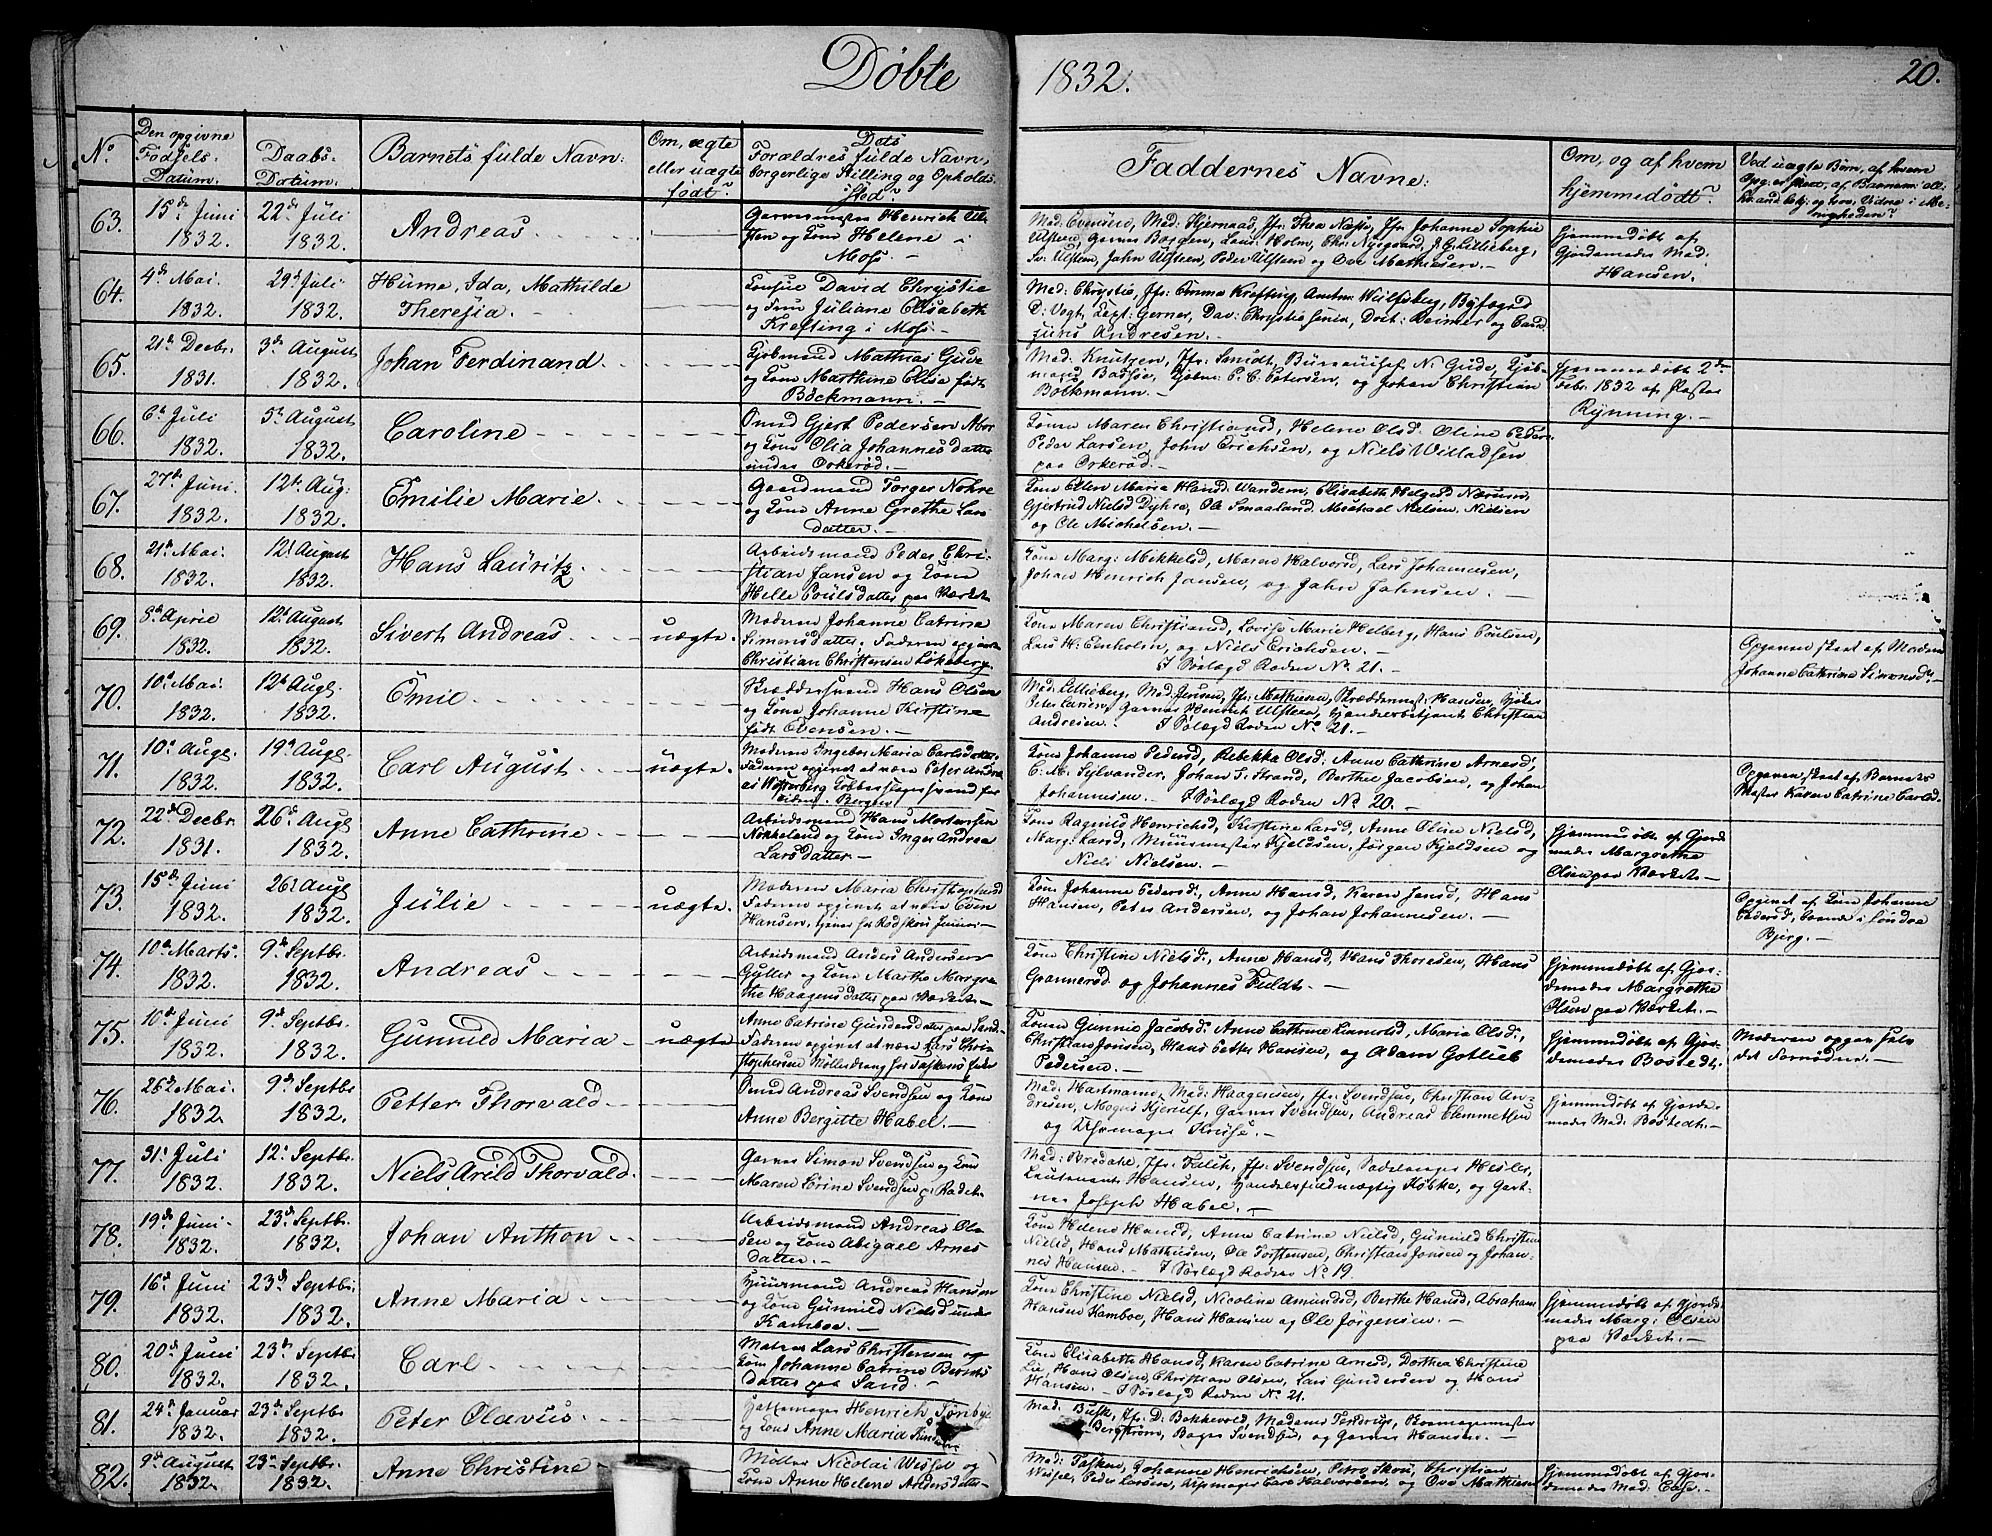 Døbte
1832.
20.
No.
Den opgivne
Fødsels-
Datum.
Daabs-
Datum.
Barnets fulde Navn:
Om, ægte
eller uægte
født?
Dets
Forældres fulde Navn,
borgerlige Stilling og Opholds-
sted?
Faddernes Navne:
Om, og af hvem
hjemmedøbt?
Ved uægte Børn, af hvem
63.
15de Juni
1832.
22de Juli
1832.
Andreas
Garvermester Henrich Ul-
sten og Kone Helene i
Moss. —
Mad: Evensen, Mad: Hjernaas, Jfr: Thea Næste, Jfr: Johanne Sophie
Ulsteen, Garver Børgen, Laus: Holm, Chr: Nysgaard, J. G. Lillieberg,
Sv: Ulsten, John Ulsteen, Peder Ulsteen og Ove Mathiesen. —
Hjemmedøbt af
Gjordemoder Mad:
Hansen.
64.
4de Mai
1832.
29de Juli
1832.
Hume, Ida, Mathilde
Theresia.
Consul David Chrystie
og Frue Juliane Elisabeth
Krefting i Moss. —
Mad: Chrystie, Jfr: Emma Krefting, Amtm: Wulfsberg, Byfoged
D: Vogt, Capt: Gerner, Dav: Chrystie senior, Doct: Reimer og Cand
juris Andresen. —
65.
21de Decbr.
1831.
3de August
1832.
Johan Ferdinand
Kjøbmand Mathias Gude
og Kone Marthine Elisa født
Bøckmann. —
Mad: Knutzen, Jfr: Smidt, Büreauchef N: Gude, Kjøb-
mand Backe, Kjøbm: P. C. Petersen, og Johan Christian
Böckmann. —
Hjemmedøbt 2den
Febr. 1832 af Pastor
Rynning. —
66.
6te Juli
1832.
5te August
1832.
Caroline
Smed Gjert Pedersen Mor
og Kone Olia Johannesdatter
under Orkerød. —
Kone Maren Christiansd, Helene Olsd. Oline Peders:
Peder Larsen, John Erichsen, og Niels Willadsen
paa Orkerød. —
67.
27de Juni.
1832.
12te Aug:
1832.
Emilie Marie
Gaardmand Torger Nohre
og Kone Anne Grethe Lars
datter. —
Kone Ellen Maria Hansd: Wandem, Elisabeth Helgesd Nærum,
Gjertrud Nielsd Dyhre, Ole Smaaland, Michael Nielsen, Nielsen
og Ole Michelsen. —
68.
21de Mai.
1832.
12te August
1832.
Hans Lauritz
Arbeidsmand Peder Chri-
stian Jansen og Kone
Helle Poulsdatter paa Værket.
Kone Marg: Mikkelsd, Maren Halvorsd, Lars Johannesen,
Johan Henrich Jansen, og John Johnsen. —
69.
8de Aprie
1832.
12te August
1832.
Sivert Andreas
uægte.
Moderen Johanne Catrine
Simensdatter. Faderen opgivet
Christian Christensen Løkeberg.
Kone Maren Christiansd, Lovise Marie Helberg, Hans Poulsen,
Lars H: Eenholm, og Niels Erichsen. —
I Sørlagd Roden No. 21. —
Opgaven skeet af Moderen
Johanne Cathrine Simensd. —
70.
10de Mai.
1832.
12te Augt.
1832.
Emil
Skræddersvend Hans Olsen
og Kone Johanne Kirstine
født Evensen. —
Mad: Lillieberg, Mad: Jensen, Jfr: Mathiesen, Skræddermest: Hansen,
Peter Larsen, Garver Henrich Ulsteen, Handelsbetjent Christian
Andresen. — I Sølægd Roden No 21. —
71.
10de Augt.
1832.
19de Augt.
1832.
Carl August
uægte.
Moderen Ingebor Maria Carlsdatter
Faderen opgivet at være Peter Andre
Bergen
Kone Johanne Pedersd, Rebekka Olsd: Anne Cathrine Arnesd,
C. M: Sylvander, Johan T: Strand, Berthe Jacobsen, og Johan
Johannesen. — I Sørlagd Roden No 20. —
Opgaven skeet af Barnets
Karen Catrine Carlsd. —
72.
22de Decbr.
1831.
26de Augt
1832.
Anne Cathrine
Arbeidsmand Hans Mortensen
Nokkeland og Kone Inger Andrea
Larsdatter —
Kone Ragnild Henrichsd, Kirstine Larsd, Anne Oline Nielsd,
Marg: Larsd, Muurmester Kjeldsen, Jørgen Kjeldsen og
Niels Nielsen. —
Hjemmedøbt af Gjorde
moder Margrethe
Olsen paa Værket. —
73.
15de Juni
1832.
26de Augt
1832.
Julie
uægte.
Moderen Maria Christophersd
Faderen opgivet at være Even
Hansen,
Kone Johanne Pedersd, Anne Hansd, Karen Jensd, Hans
Hansen, Peter Andersen, og Johan Johannesen. —
Opgivet af Kone Johanne
Pedersd,
Bjerg. —
74.
10de Marts.
1832.
9de Septbr.
1832.
Andreas
Arbeidsmand Anders Andersen
Guller og Kone Marthe Margre
the Haagensdatter paa Værket. —
Kone Christine Nielsd, Anne Hansd, Hans Thoresen, Hans
Grønnerød og Johannes Fuldt. —
Hjemmedøbt af Gjor-
demoder Margrethe
Olsen paa Værket. —
75.
10de Juni
1832.
9de Septbr.
1832.
Gunnild Maria
uægte
Anne Catrine Gundersdatter paa Sand.
Faderen opgivet at være Lars Chri
stophersen Møllerdreng
Konen Gunnie Jacobsd, Anne Cathrine Linnersd, Maria Olsd,
Christian Jonsen, Hans Petter Hansen, og Adam Gotlieb
Pedersen. —
Hjemmedøbt af Gjor-
demoder Bostedt.
Moderen opgav selv
det Fornødne. —
76.
26de Mai.
1832.
9de Septbr
1832.
Petter Thorvald
Smed Andreas Svendsen og Kone
Anne Bergitte Habel. —
Mad: Hartmann, Mad: Haagensen, Jfr: Svendsen, Christian An-
dresen, Mogns Kjerulf, Garver Svendsen, Andreas Clemmetsen
og Uhrmager Kruse. —
Hjemmedøbt af Gjorde-
moder Mad: Bostedt. —
77.
31te Juli
1832.
12te Septbr.
1832.
Niels Arild Thorvald
Garver Simon Svendsen og Kone
Maren Lorine Svendsen
Mad: Bredahl, Jfr: Falch, Jfr: Svendsen, Sadelmager Hesler,
Lieutenant Hansen, Handelsfuldmægtig Købke, og Gart-
ner Joseph Habel. —
78.
19de Juni
1832.
23de Septbr.
1832.
Johan Anthon
Arbeidsmand Andreas Ola
sen og Kone Abigael Arnes
datter. —
Kone Helene Hansd, Anne Catrine Nielsd, Gunnild Christen
Nielsd, Hans Mathiesen, Ole Torstensen, Christian Jonsen og Johan-
nes Hansen. — I Sørlægd Roden No 19
79.
16de Juni
1832.
23de Septbr
1832.
Anne Maria
Huusmand Andreas Hansen
og Kone Gunnild Nielsd under
Kamboe. —
Kone Christine Nielsd, Nicoline Amundsd, Berthe Hansd, Abraham
Hansen Kamboe, Hans Hansen og Ole Jørgensen. —
Hjemmedøbt af Gjorde
moder Marg: Olsen
paa Værket. —
80.
20de Juni
1832.
23de Septbr
1832.
Carl
Matros Lars Christensen og
Kone Johanne Catrine Bernts
datter paa Sand. —
Kone Elisabethe Hansd, Karen Catrine Arnesd, Dorthea Christine
Lie, Hans Olsen, Christian Olsen, Lars Gundersen og Hans
Hansen. — I Sørlægd Roden No. 21.
81.
24de Januar
1832.
23de Septbr
1832.
Peter Olavus
Hattemager Henrich Tønby
og Kone Anne Maria
Mad: Busk, Jfr: D: Bakkevold, Madame
Bergstrøm, Bager Svendsen, og Garver Hansen. —
82.
9de August
1832.
23de Septbr.
1832.
Anne Christine
Møller Nicolai Wissel og
Kone Anne Helene Arldersdatter
Mad: Fasken, Johanne Henrichsen, Petro Skou, Christian
Wissel, Peder Larsen, Lars Halvorsen, og Ove Mathiesen
Hjemmedøbt af Gjor-
demoder Mad: Case. —